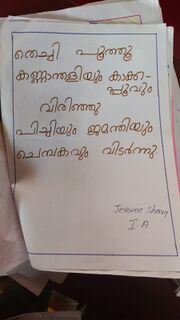 തെച്ചി പൂത്തൂ
കണ്ണാന്തളിയും കാക്ക-
പ്പൂവും
വിരിഞ്ഞു
പിച്ചിയും ജമന്തിയും
ചെമ്പകവും വിടർന്നു.
Jerome
I. A